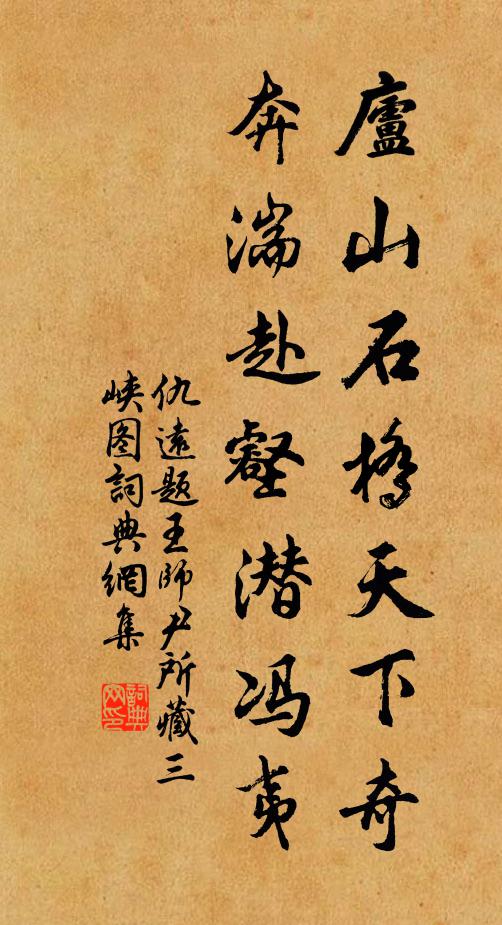 廬山石橋天下奇
奔湍赴壑潜冯夷
仇遠題王師尹所藏三
峡图詞典網集
詞典网印